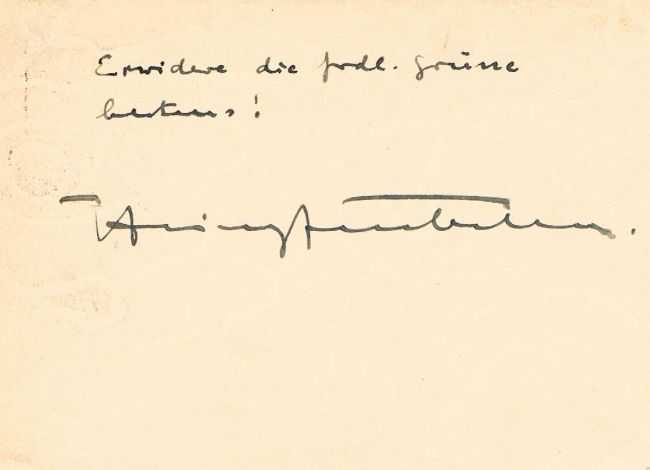 Erwidere die frdl. Grüsse
bestens!